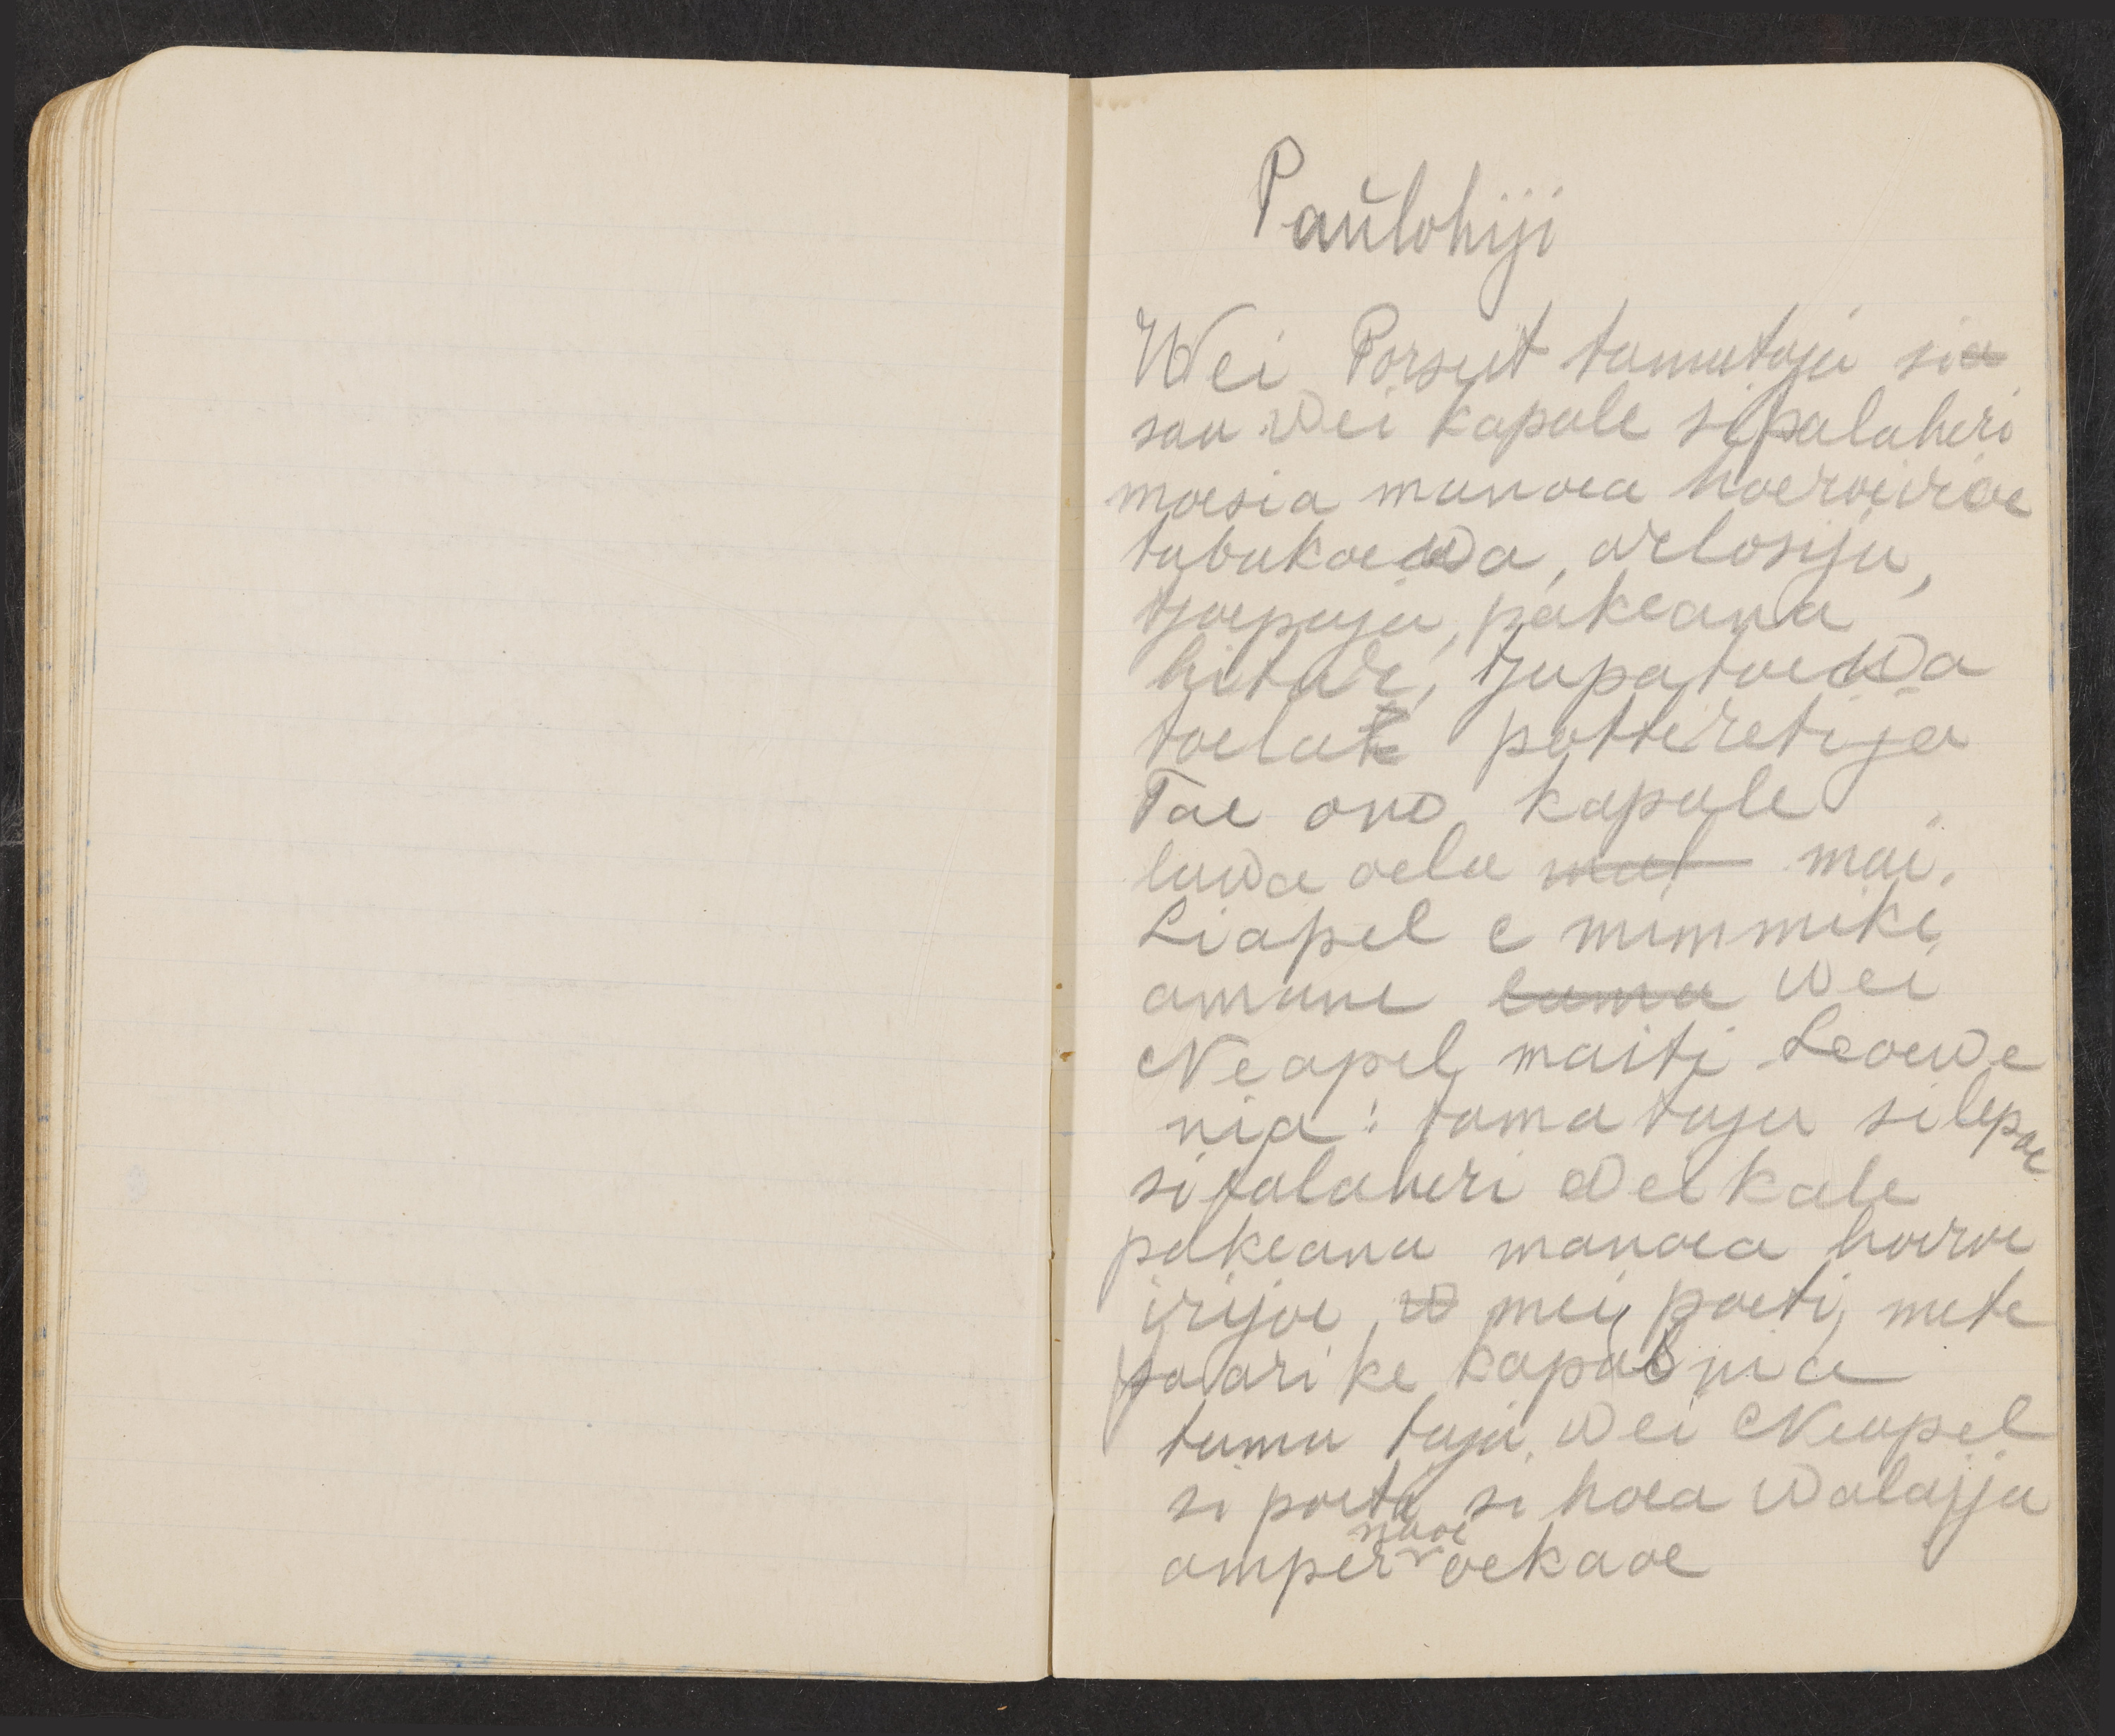 Paŭlohiji
Wei Porsut tamataja si
sau wei kapale sipalaheri
moesia manoea hoeroeiroe
tabakoewa, orlosiju,
tjoepaja, pakeana
hitare, tjapatoewa
toela potteretija
Tae ono kapale
lawa oela mai.
Liapel e mimmike
amane wei
Neapel maiti Leoewe
nia: tamataja silepae
sitalaheri wei kale
pakeana manoea hoeroe
irijoe mei poeti mete
poarike kapalnia
tama taja wei Neapel
si poeti si hoea walajja
amper naoe oekaoe